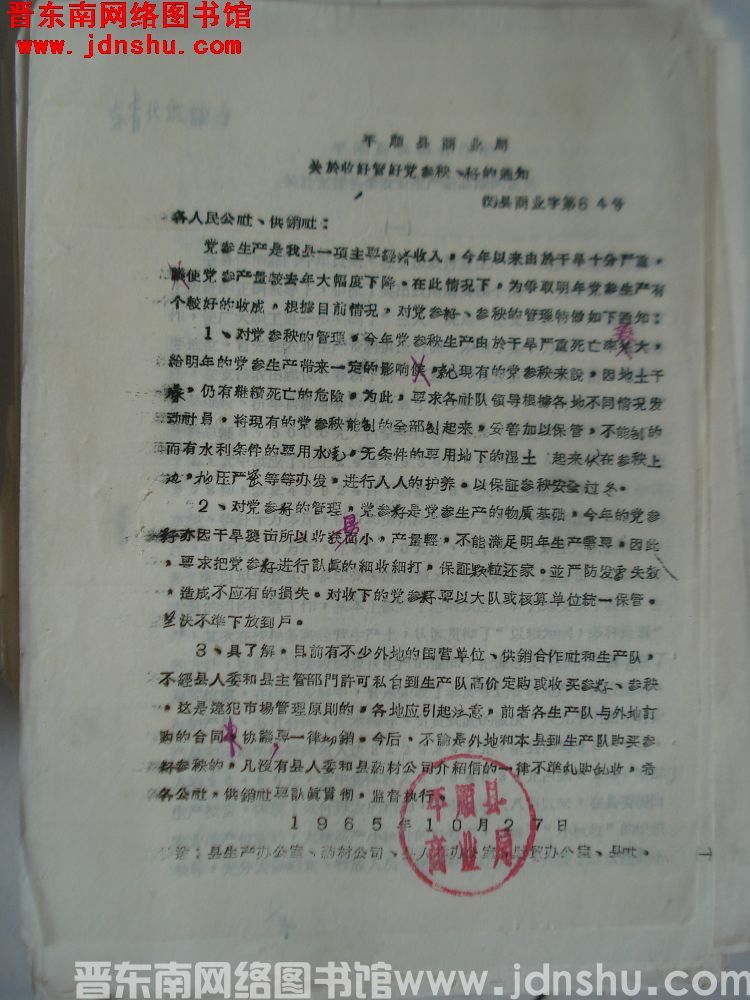 晋东南网络图书馆
www.jdnshu.com
平顺县商业局
关於收好管好党参秧、籽的通知
县商业字第64号
各人民公社、供銷社：
党参生产是我县一项主要經济收入，今年以来由於干旱十分严重，
使党参产量較去年大幅度下降。在此情况下，为爭取明年党参生产有
个較好的收成，根据目前情况，对党参籽、参秧的管理特做如下通知：
1、对党参秧的管理，今年党参秧生产由於干旱严重死亡率大，
給明年的党参生产带来一定的影响，就現有的党参秧来說，因地土干
燥，仍有继續死亡的危險。为此，要求各社队領导根据各地不同情况发
动社員，将現有的党参秧能刨的全部刨起来，妥善加以保管，不能刨的
而有水利条件的要用水浇，无条件的要用地下的湿土 起来伏在参秧上
边，抽压严密等等办发，进行人人的护养。以保証参秧安全过冬。
2、对党参籽的管理，党参籽是党参生产的物质基础，今年的党参
籽亦因干旱所以收获面小，产量輕，不能滿足明年生产需要，因此
，要求把党参籽进行認眞的細收細打，保証颗粒还家。並严防发霉失效
，造成不应有的損失。对收下的党参籽要以大队或核算单位統一保管。
坚决不準下放到戶。
3、具了解，目前有不少外地的国营单位、供銷合作社和生产队，
不經县人委和县主管部門許可私自到生产队高价定购或收买参籽、参秧
。这是違犯市場管理原則的，各地应引起注意，前者各生产队与外地訂
购的合同、协議要一律切銷。今后，不論是外地和本县到生产队购买参
籽参秧的，凡沒有县人委和县葯材公司介紹信的一律不準乱购乱收，希
各公社，供銷社要認眞貫彻，监督执行。
1965年10月27日
平顺县
商业局
：县生产办公室、葯材公司、办公室、县社。
晋东南网络图书馆www.jdnshu.com